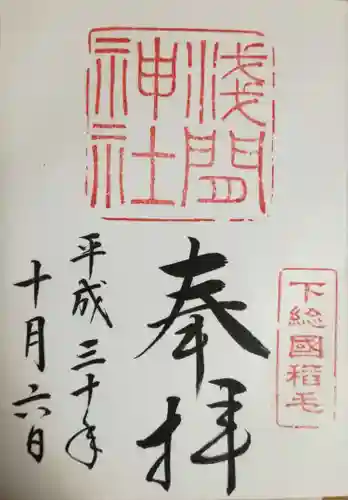 下総國稲毛
浅間
神社
奉拝
平成三十年
十月六日